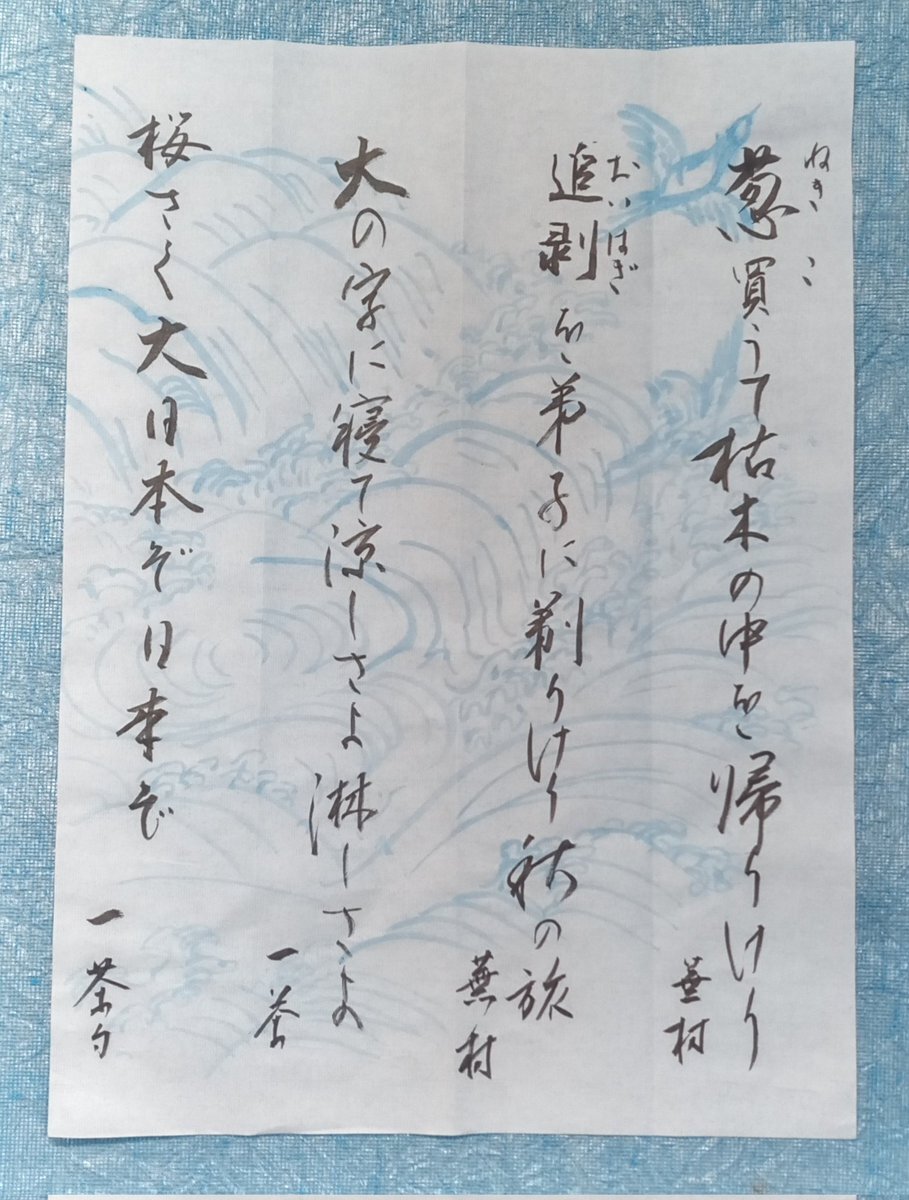 ねぎ
葱買うて枯木の中を帰りけり
蕪村
おいはぎ
追剥を弟子に剃りけり秋の旅
蕪村
大の字に寝て涼しさよ淋しさよ
一茶
桜さく大日本ぞ日本ぞ
一茶句